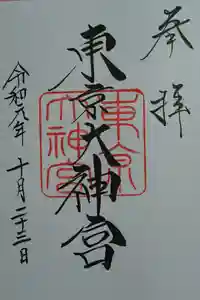 奉拝
東京大神宮
東京大神宮
令和元年十月二十三日